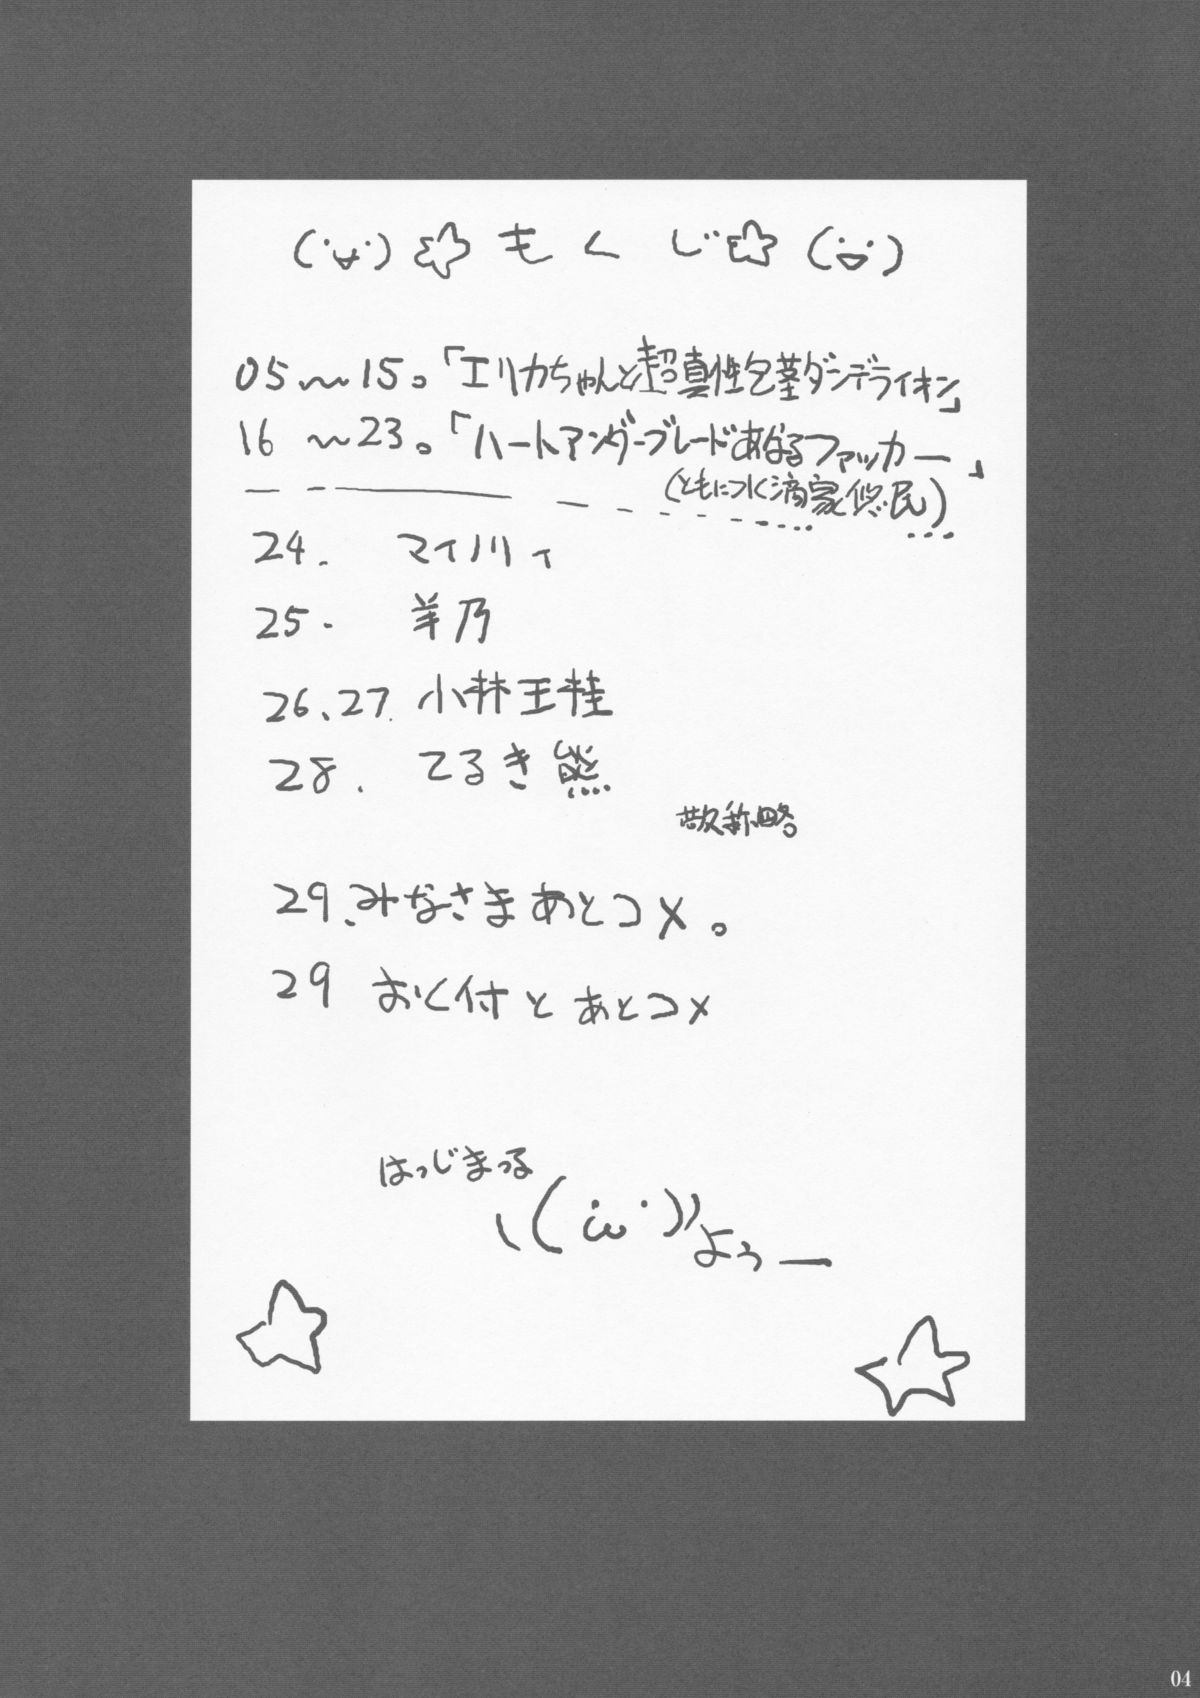 (･∀･)☆もくじ☆(･▽･)
05〜15。「エリカちゃんと超真性包茎ダンデライオン」
16〜23。「ハートアンダーブレードあなるファッカー」
(ともにつくしく滴家悠民)
24. マイノリィ
25. 羊乃
26、27. 小林王桂
28. てるき熊
敬称略。
29、みなさまあとコメ。
29 おく付とあとコメ
はっじまっる
ヽ(･ω･)ﾉよぅー
04